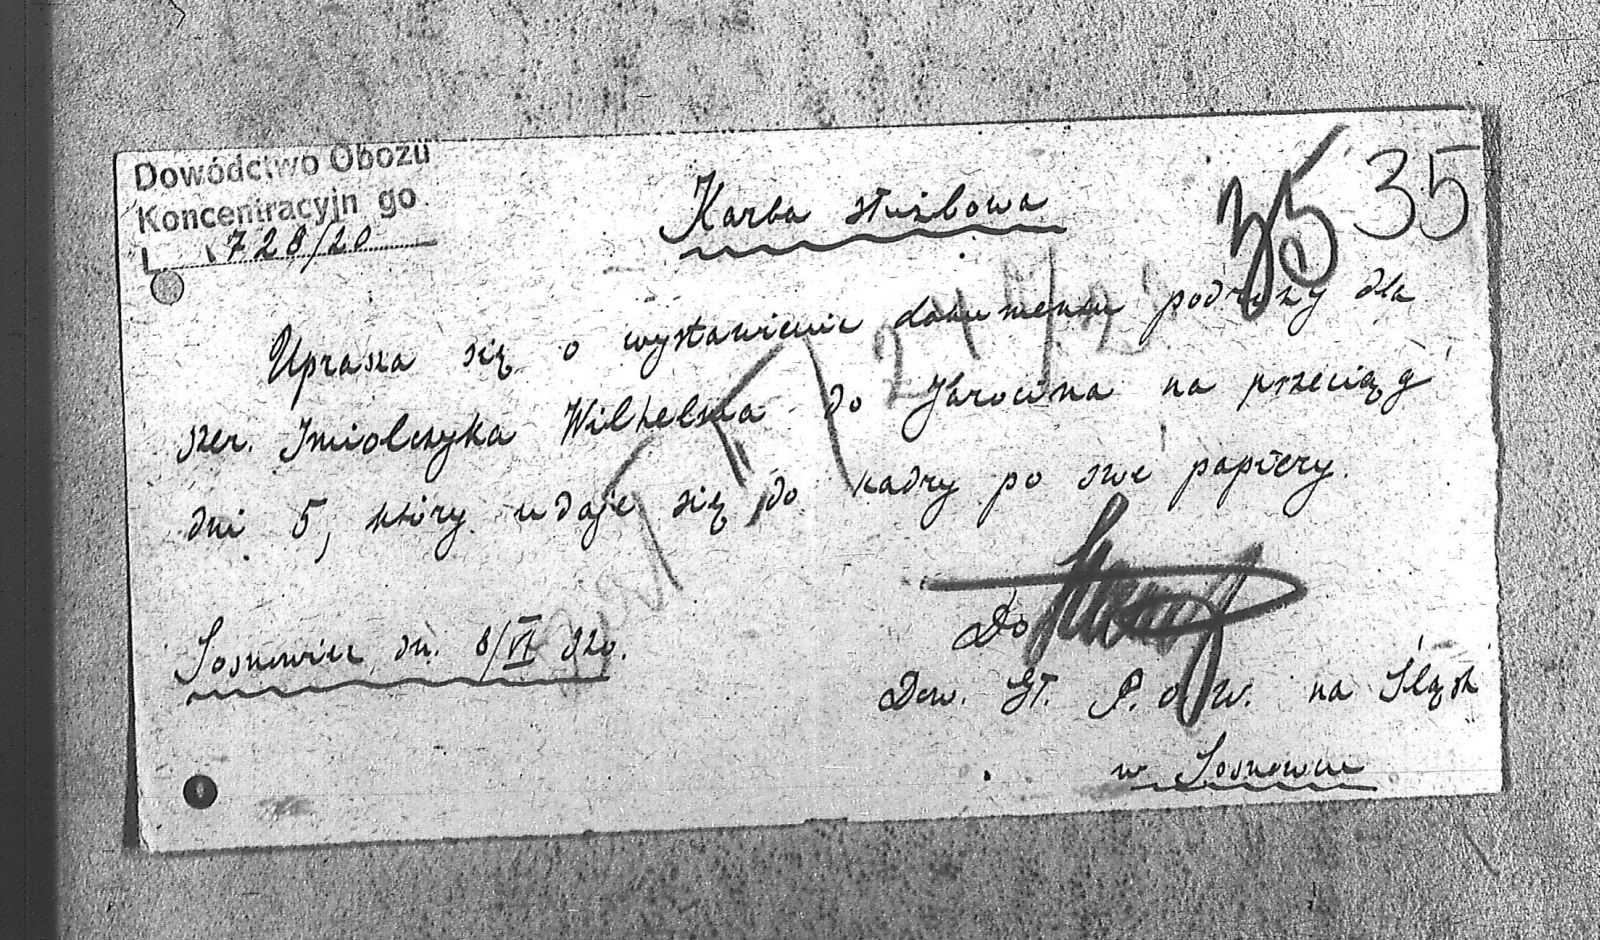 Dowództwo Obozu
Koncentracyjn go
L. 728/20
Karta służbowa
35 35
Uprasza się o wystawienie dokumentu podróży dla
szer. Imiolczyka Wilhelma do Jarocina na przeciąg
dni 5, który udaje się do kadry po swe papiery.
Sosnowiec dn. 8/VI 920.
Do
Dow. Gł. P.O.W. na Śląsk
w Sosnowcu